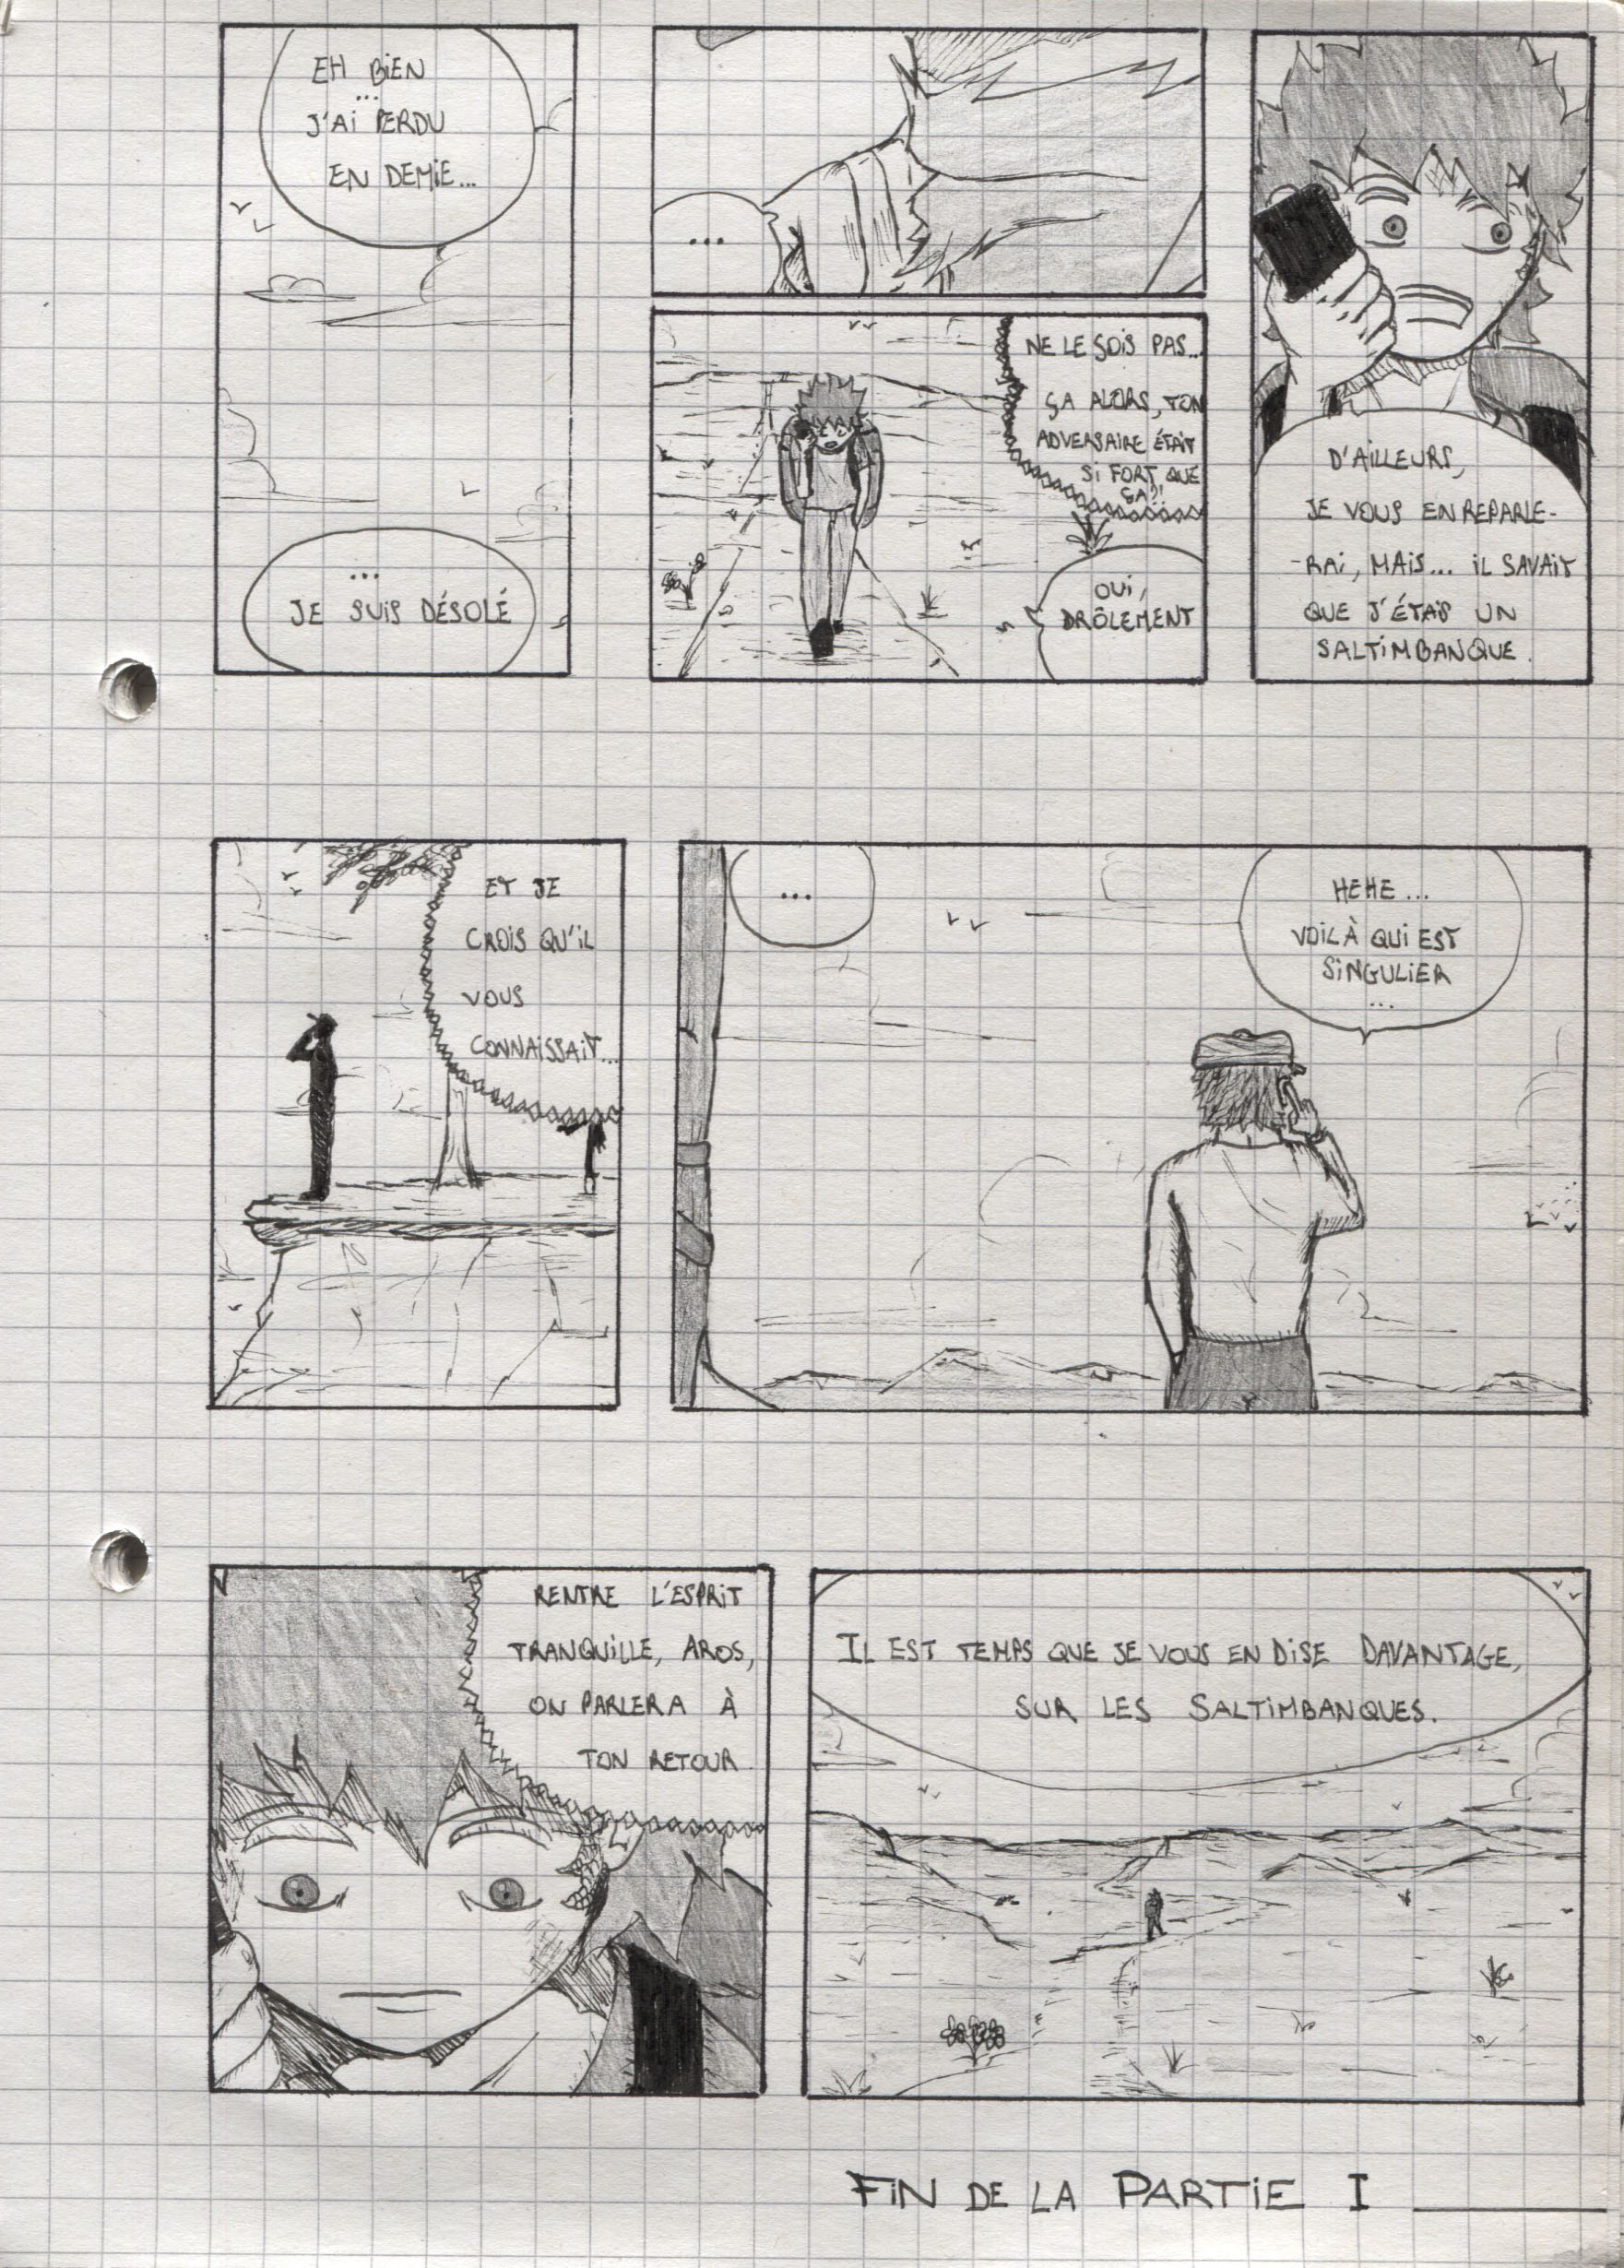 EH BIEN
...
J'AI PERDU
EN DEMIE...
...
JE SUIS DÉSOLÉ
...
NE LE SOIS PAS...
ÇA ALORS, TON
ADVERSAIRE ÉTAIT
SI FORT QUE
ÇA?!
OUI,
DRÔLEMENT
D'AILLEURS,
JE VOUS EN REPARLE-
-RAI, MAIS... IL SAVAIT
QUE J'ÉTAIS UN
SALTIMBANQUE.
ET JE
CROIS QU'IL
VOUS
CONNAISSAIT...
...
HEHE...
VOILÀ QUI EST
SINGULIER
...
RENTRE L'ESPRIT
TRANQUILLE, AROS,
ON PARLERA À
TON RETOUR.
IL EST TEMPS QUE JE VOUS EN DISE DAVANTAGE,
SUR LES SALTIMBANQUES.
FIN DE LA PARTIE I